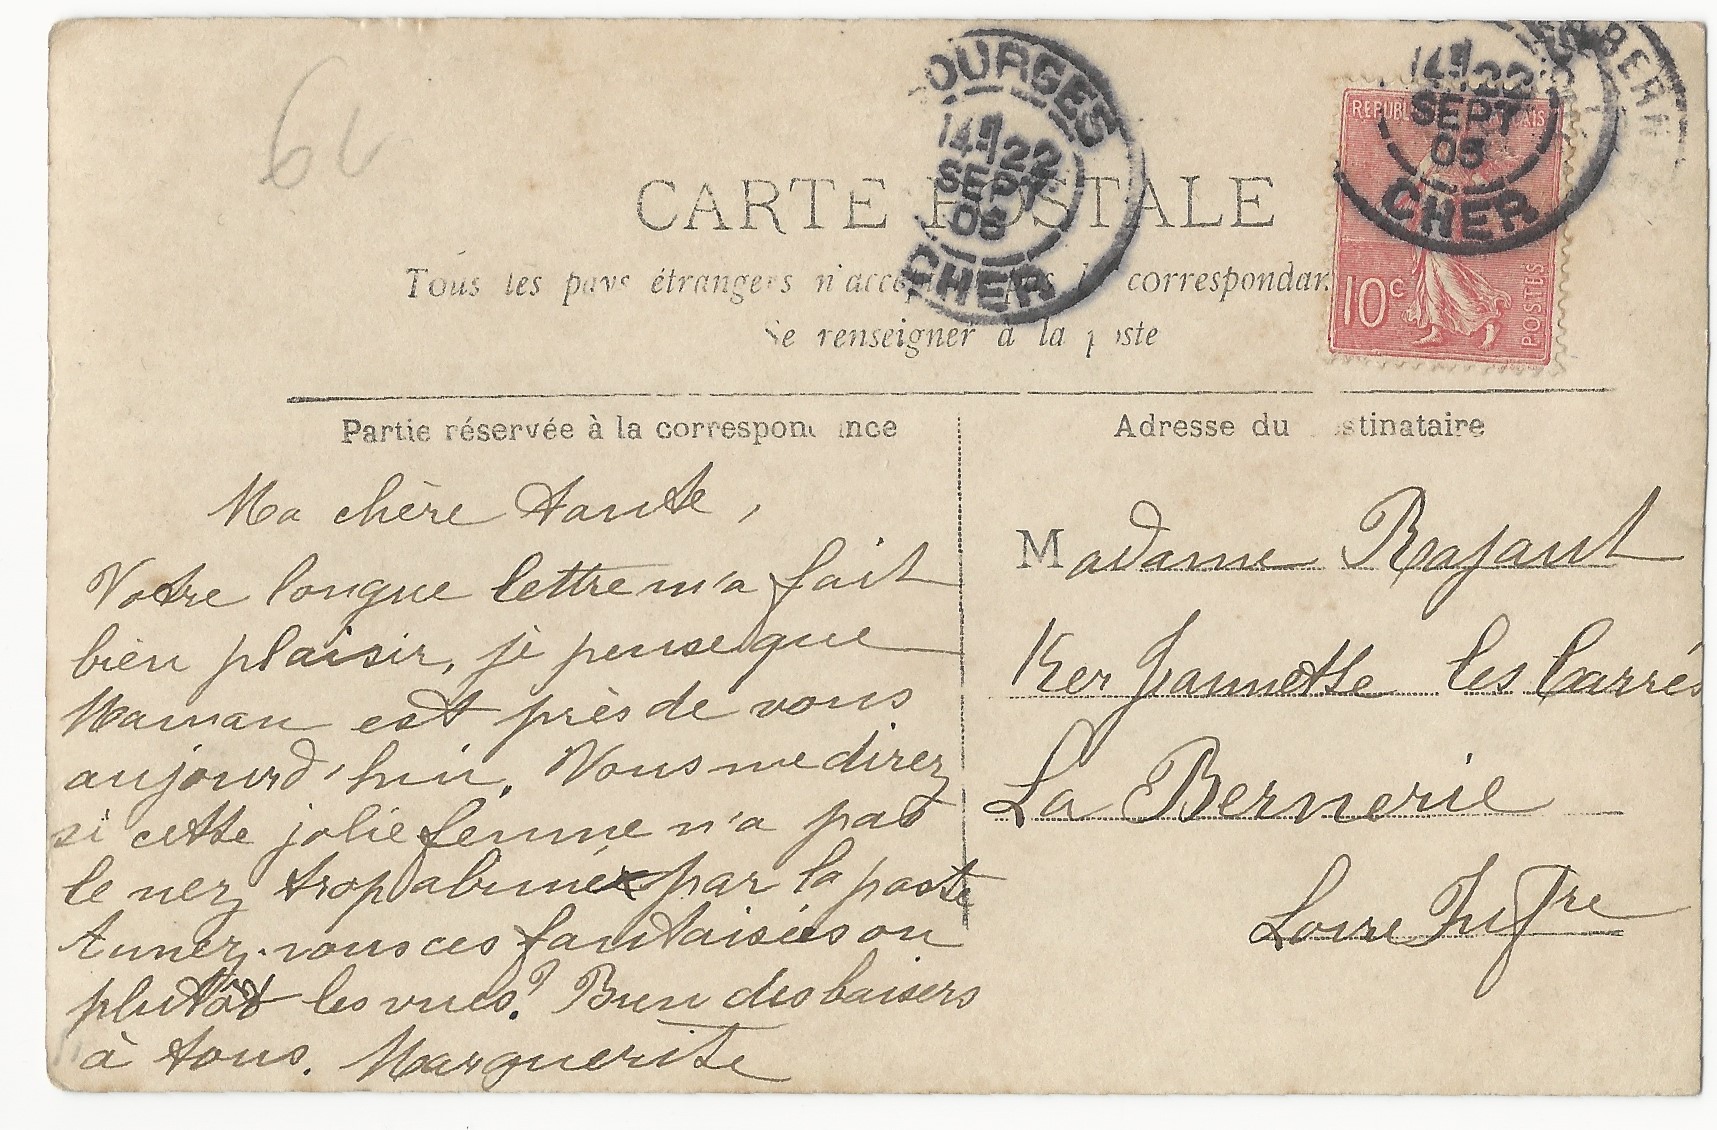 6
OURGES
14 22
SEPT
05
CHER
14 22
SEPT
05
CHER
BERN
REPUBL AIS
10c
POSTES
CARTE POSTALE
Tous les pays étrangers n'accep pas la correspondan
Se renseigner à la poste
Partie réservée à la correspondance
Ma chère tante,
Votre longue lettre m'a fait
bien plaisir, je pense que
Maman est près de vous
aujourd'hui. Vous me direz
si cette jolie femme n'a pas
le nez trop abimé par la poste
Aimez-vous ces fantaisies ou
plutôt les vues? Bien des baisers
à tous. Marguerite
Adresse du destinataire
Madame Rajaut
Ker Jannette les Carrés
La Bernerie
Loire Infre